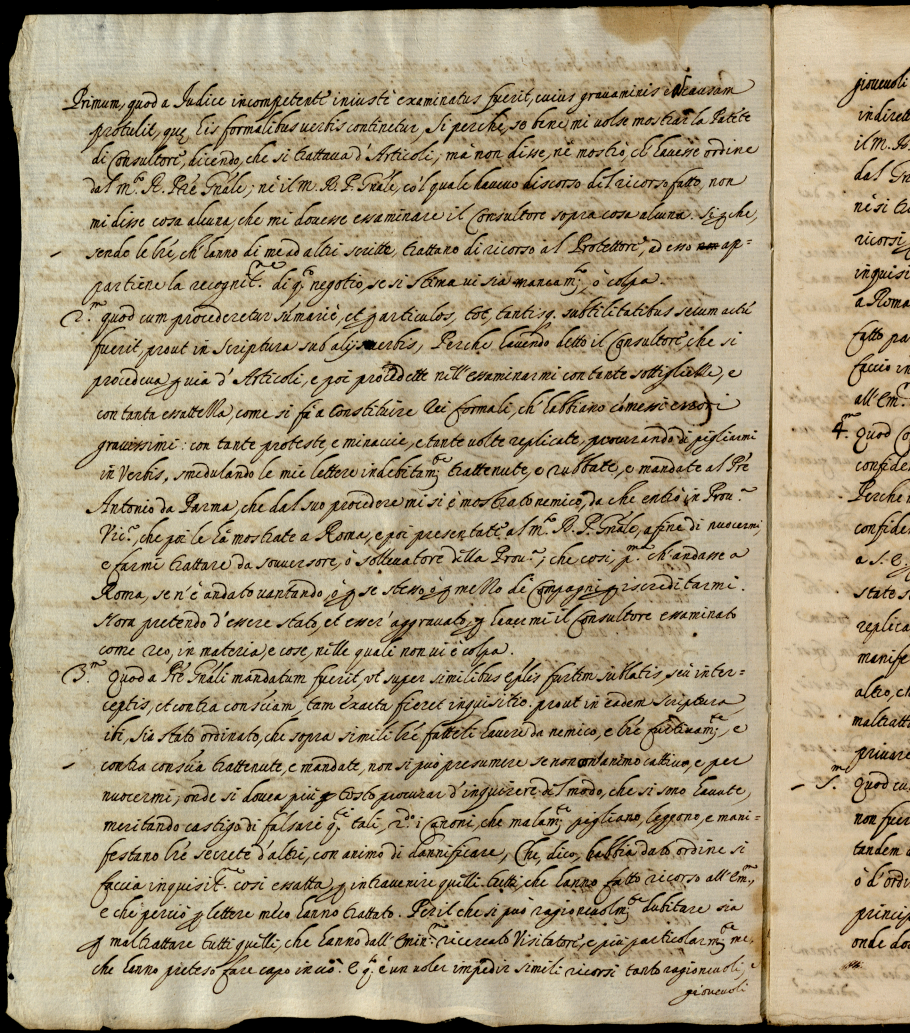 Primum, quod a Iudice incompetente iniustè examinatus fuerit, cuius grauaminis causam
protulit, quę his formalibus uerbis continetur, Si perche, se bene mi volse mostrar la Patẽte
di Consultore, dicendo, che si trattaua d'Articoli; mà non disse, nè mostrò, ch'hauesse ordine
dal m.º R. Pře Gñale; nè il m. R. P. Gñale, co'l quale haueuo discorso del ricorso fatto, non
mi disse cosa alcuna, che mi douesse essaminare il Consultore sopra cosa alcuna. Si che,
sendo le lre, ch'hanno di me ad altri scritte, trattano di ricorso al Protettore, ad esso ap=
partiene la recognit.ne di q.º negotio, se si stima ui sia mancam.to, ò colpa.
2.m quod cum procederetur sũmariè, et p articulos, tot, tantisq. subtilitatibus secum actũ
fuerit, prout in Scriptura sub alijs uerbis, Perche hauendo detto il Consultore che si
procedeua p uia d'Articoli, e poi procedette nell'essaminarmi con tante sottigliezze, e
con tanta esattezza, come si fà a constituire Rei formali, ch'habbiano cõmessi errori
grauissimi: con tante proteste, e minaccie, e tante uolte replicate, procurando di pigliarmi
in Verbis, smedulando le mie lettere indebitam.te trattenute, e rubbate, e mandate al Pre
Antonio da Parma, che dal suo procedere mi si è mostrato nemico, da che entrò in Prou.le
Vic.o, che poi le hà mostrate a Roma, e poi presentate al m.º R. P. Gñale, a fine di nuocermi,
e farmi trattare da souuersore, ò solleuatore della Prou.a; che così, p.ma ch'andasse a
Roma, se n'è andato uantando, ò p se stesso ò p mezzo de Compagni p iscreditarmi.
Hora pretendo d'essere stato, et esser'aggrauato, p hauermi il Consultore essaminato
come reo, in materia, e cose, nelle quali non ui è colpa.
3.m Quod a Pre Gñali mandatum fuerit, vt super similibus ep̃lis furtim sublatis, seù inter=
ceptis, et contra consciam, tam exacta fieret inquisitio. prout in eadem scriptura,
ibi, Sia stato ordinato, che sopra simili lre fatteli hauere da nemico, e lre furtiuam.te, e
contra consũa trattenute, e mandate, non si può presumere se non con'animo cattiuo, e per
nuocermi; onde si douea più tosto procurar d'inquirere del modo, che si sono hauute,
meritando castigo di falsarÿ q.sti tali, 2.do i Canoni, che malam.te pigliano, leggono, e mani=
festano lre secrete d'altri, con animo di dannificare, Che, dico, habbia dato ordine si
faccia inquisit.ne così essatta, p intrauenire quelli tutti, che hanno fatto ricorso all'Em.mo,
e che perciò p lettere meco hanno trattato. Peril che si può ragioneuolm.te dubitare sia
p maltrattare tutti quelli, che hanno dall'Emin.mo ricercato Visitatore, e più particolarm.te me,
che hanno preteso fare capo in ciò. E q.o è un uoler impedir simili ricorsi tanto ragioneuoli, e
gioueuoli
gioueuoli
indiret
il M. R.
dal Gñ
nè si tr
ricorsi
inquisi
a Roma
fatto pa
faccio in
all'Em.
4.m Quod Co
confider
Perche
confider
a S. E.
stato s
replica
manife
altro, ch
maltratt
priuare
5.m Quod cu
non fuer
tandem
ò d'ordi
princip
onde do